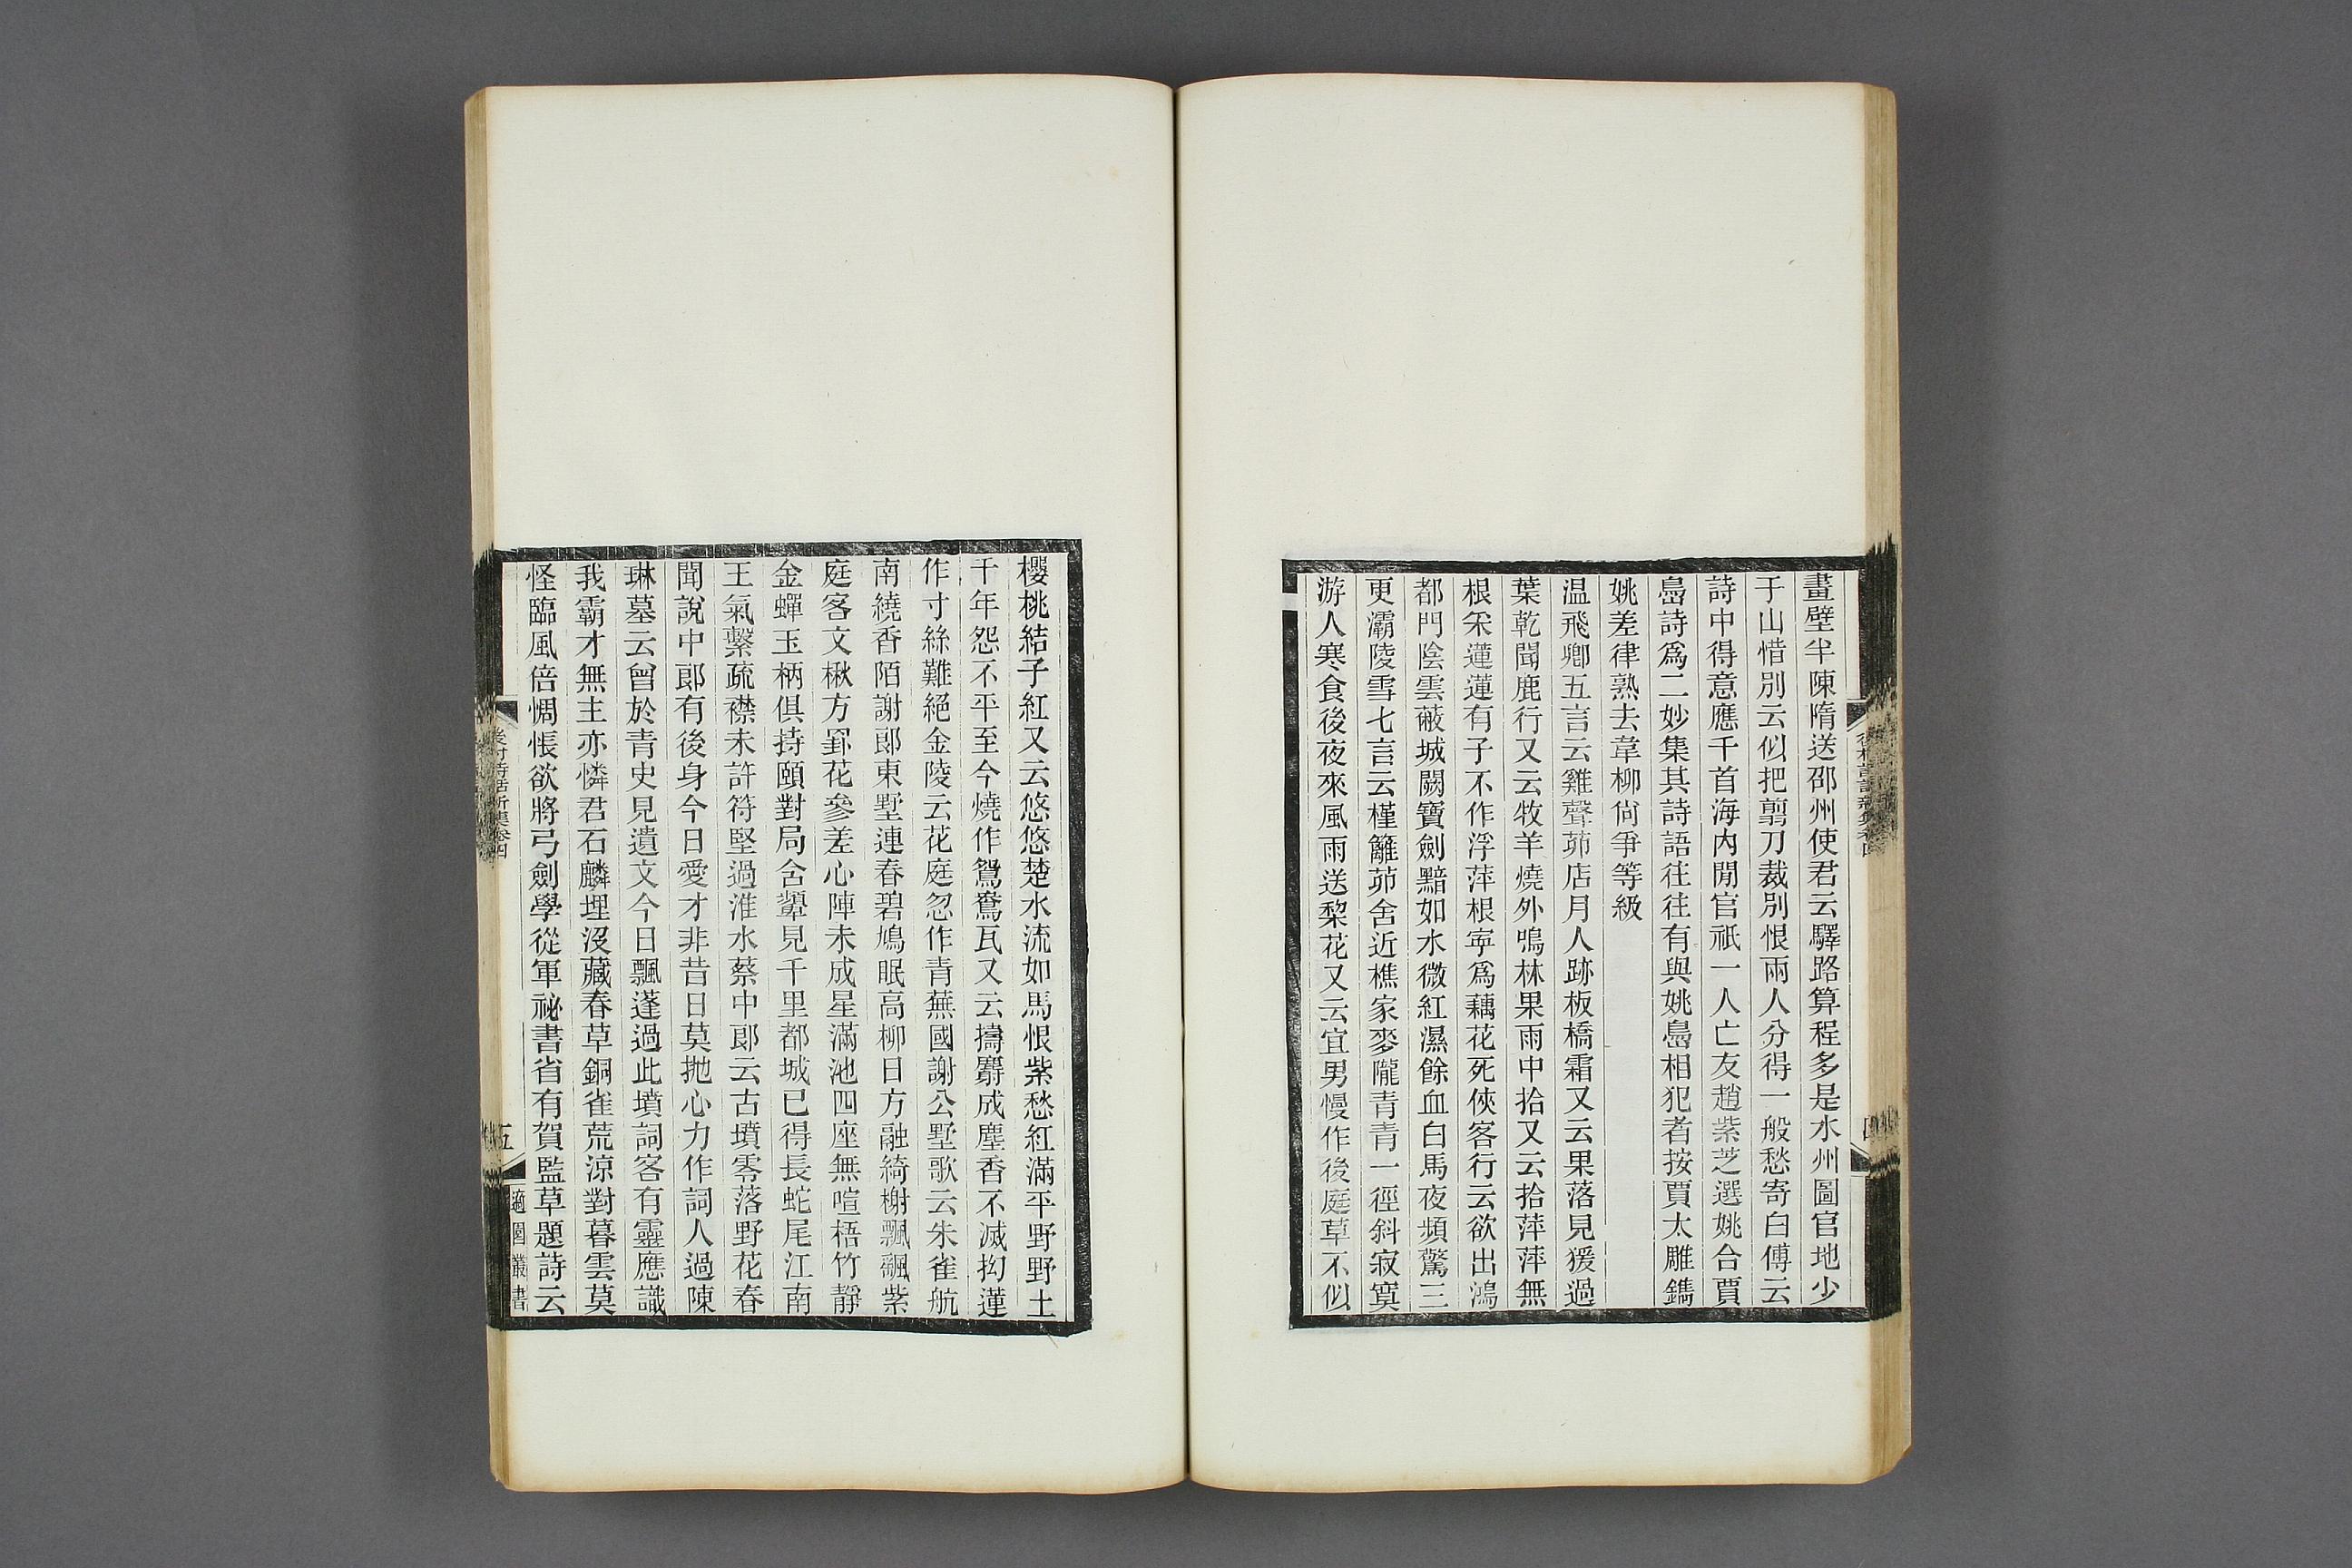 畫壁半陳隋送邵州使君云驛路算程多是水州圖官地少
于山惜別云似把翦刀裁別恨兩人分得一般愁寄白傅云
詩中得意應千首海內閒官祇一人亡友趙紫芝選姚合賈
島詩爲二妙集其詩語往往有與姚島相犯者按賈太雕鐫
姚差律熟去韋柳尙爭等級
温飛卿五言云雞聲茆店月人跡板橋霜又云果落見猨過
葉乾聞鹿行又云牧羊燒外鳴林果雨中拾又云拾萍萍無
根采蓮蓮有子不作浮萍根寧爲藕花死俠客行云欲出鴻
都門陰雲蔽城闕寶劍黯如水微紅濕餘血白馬夜頻驚三
更灞陵雪七言云槿籬茆舍近樵家麥隴青青一徑斜寂寞
游人寒食後夜來風雨送棃花又云宜男慢作後庭草不似
後村詩話新集卷四
四
櫻桃結子紅又云悠悠楚水流如馬恨紫愁紅滿平野野土
千年怨不平至今燒作鴛鴦瓦又云擣麝成塵香不滅拗蓮
作寸絲難絕金陵云花庭忽作青蕪國謝公墅歌云朱雀航
南繞香陌謝郞東墅連春碧鳩眠高柳日方融綺榭飄颻紫
庭客文楸方罫花參差心陣未成星滿池四座無喧梧竹靜
金蟬玉柄俱持頤對局含顰見千里都城已得長蛇尾江南
王氣繫疏襟未許符堅過淮水蔡中郞云古墳零落野花春
聞說中郞有後身今日愛才非昔日莫抛心力作詞人過陳
琳墓云曾於青史見遺文今日飄蓬過此墳詞客有靈應識
我霸才無主亦憐君石麟埋沒藏春草銅雀荒涼對暮雲莫
怪臨風倍惆悵欲將弓劍學從軍祕書省有賀監草題詩云
後村詩話新集卷四
五
適園叢書